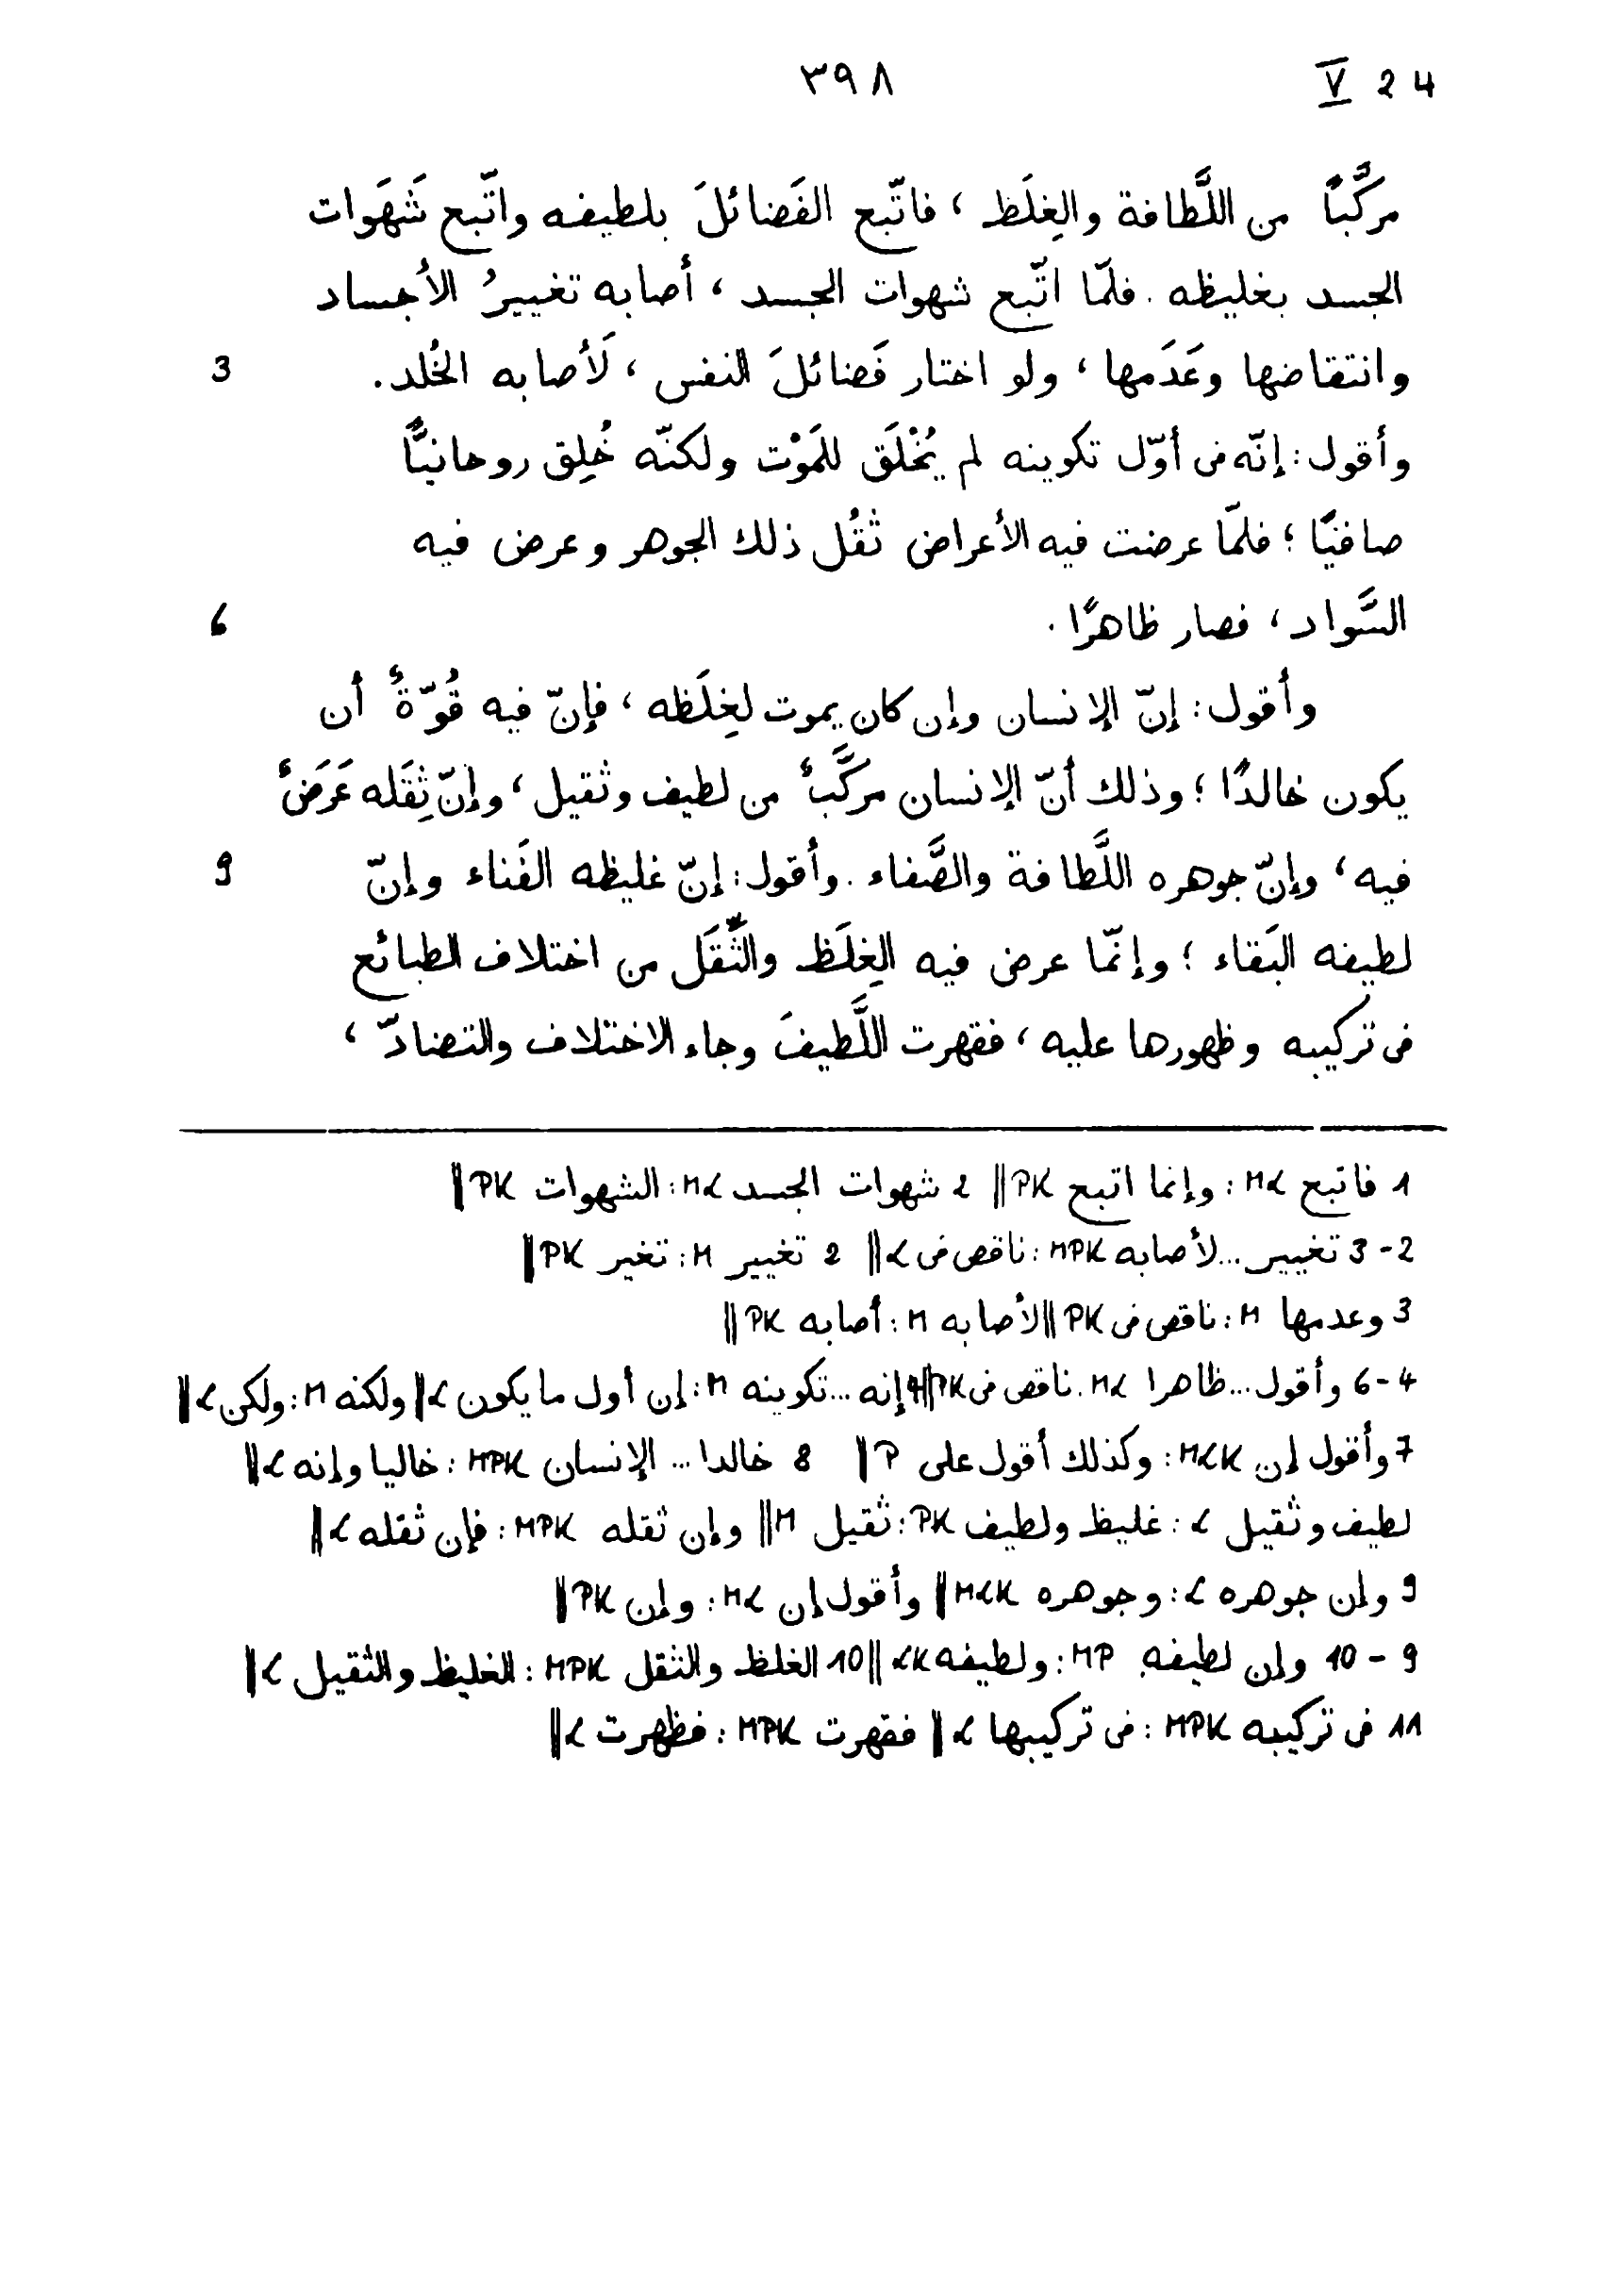 ٣٩٨ V 24
مركَّبًا من اللَّطافة والغِلَظ ، فاتّبع الفَضائلَ بلطيفه واتّبع شَهَوات
الجسد بغليظه . فلمّا اتّبع شهوات الجسد ، أصابه تغييرُ الأجساد
وانتقاضها وعَدَمها ، ولو اختار فَضائلَ النفس ، لَأصابه الخُلد . 3
وأقول : إنّه فى أوّل تكوينه لم يُخْلَق للمَوْت ولكنّه خُلِق روحانيًّا
صافيًا ؛ فلمّا عرضت فيه الأعراض ثَقُل ذلك الجوهر وعرض فيه
السَّواد ، فصار ظاهرًا . 6
وأقول : إنّ الإنسان وإن كان يموت لغِلَظه ، فإنّ فيه قُوّةً أن
يكون خالدًا ؛ وذلك أنّ الإنسان مركَّبٌ من لطيف وثقيل ، وإنّ ثِقَله عَرَضٌ
فيه ، وإنّ جوهره اللَّطافة والصَّفاء . وأقول : إنّ غليظه الفَناء وإنّ 9
لطيفه البَقاء ؛ وإنّما عرض فيه الغِلَظ والثِّقَل من اختلاف الطبائع
فى تركيبه وظهورها عليه ، فقهرت اللَّطيفَ وجاء الاختلاف والتضادّ ،
1 فاتبع Mα : وإنما اتبع PK || 2 شهوات الجسد Mα : الشهوات PK ||
2-3 تغيير ... لأصابه MPK : ناقص فى α || 2 تغيير M : تغير PK ||
3 وعدمها M : ناقص فى PK || لأصابه M : أصابه PK ||
4-6 وأقول ... ظاهرا Mα : ناقص فى PK || 4 إنه ... تكوينه M : إن أول ما يكون α || ولكنه M : ولكن α ||
7 وأقول إن MαK : وكذلك أقول على P || 8 خالدا ... الإنسان MPK : خاليا وإنه α ||
لطيف وثقيل α : غليظ ولطيف PK : ثقيل M || وإن ثقله MPK : فإن ثقله α ||
9 وإن جوهره α : وجوهره MαK || وأقول إن Mα : وإن PK ||
9-10 وإن لطيفه MP : ولطيفه αK || 10 الغلظ والثقل MPK : الغليظ والثقيل α ||
11 فى تركيبه MPK : فى تركيبها α || فقهرت MPK : فظهرت α ||